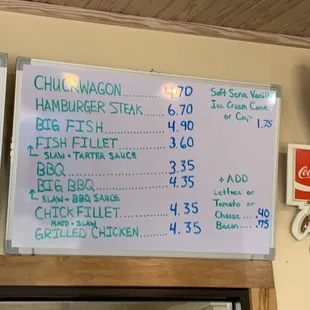 CHUCKWAGON...........4.70
HAMBURGER STEAK.....6.70
BIG FISH..............4.90
FISH FILLET...........3.60
SLAW + TARTER SAUCE
BBQ....................3.35
BIG BBQ...............4.35
SLAW + BBQ SAUCE
CHICK FILLET..........4.35
MAYO + SLAW
GRILLED CHICKEN.....4.35
Soft Serve Vanilla
Ice Cream Cone
or Cup
1.75
+ ADD
Lettuce or
Tomato or
Cheese....40
Bacon.....75